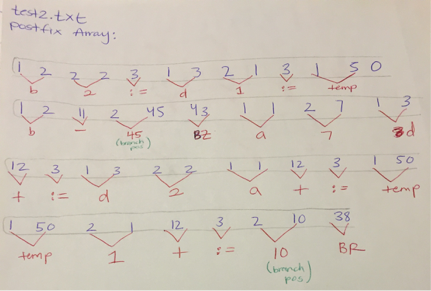 test2.txt
postfix Array:
1 2 2 2 3 1 3 2 1 3 1 5 0
b 2 := d 1 := temp
1 2 11 2 45 43 1 1 2 7 1 3
b - 45 BZ a 7 d
(branch pos)
12 3 1 3 2 2 1 1 12 3 1 50
+ := d 2 a + := temp
1 50 2 1 12 3 2 10 38
temp 1 + := 10 BR
(branch pos)